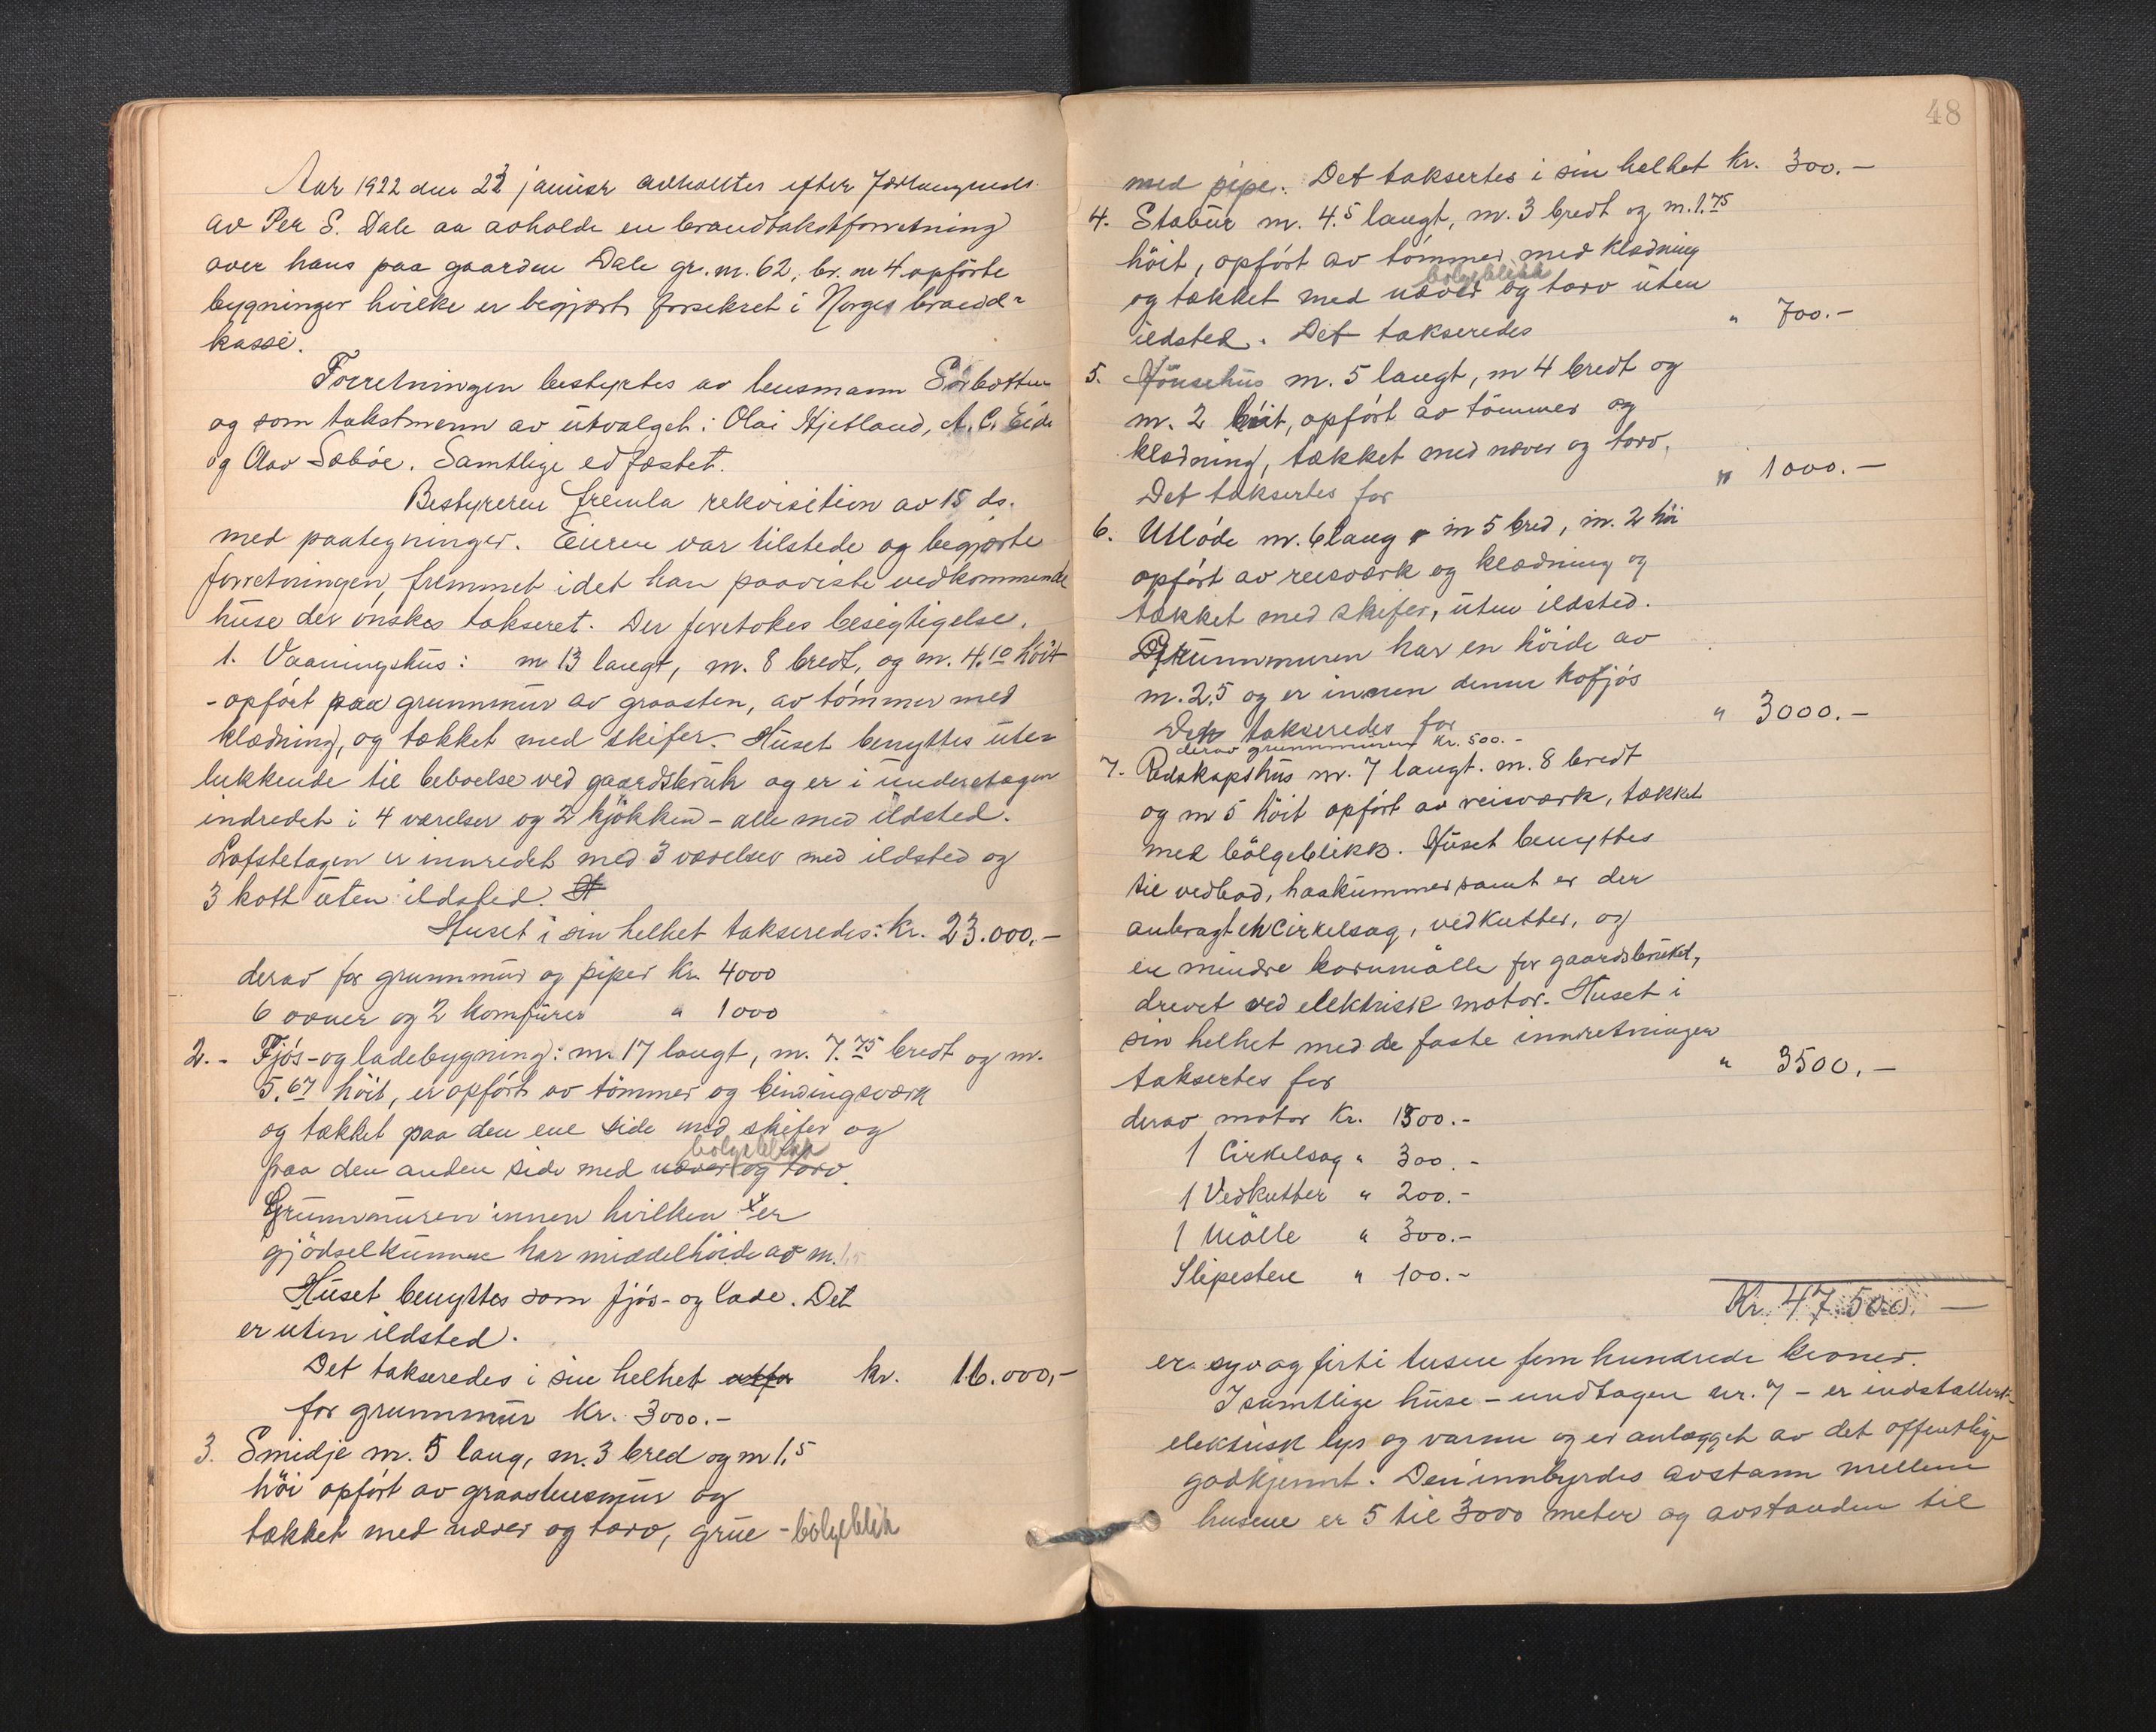 Aar 1922 den 23 januar avholdtes efter forlangende
av Per S. Dale aa avholde en brandtakstforretning
over hans paa gaarden Dale gr. nr. 62, br. nr 4 opförte
bygninger hvilke er begjært forsekret i Norges brand-
kasse.
Forretningen bestyrtes av lensmann Sörbotten
og som takstmenn av utvalget: Olai Hjetland, A. C. Eide
og Olav Sæböe. Samtlige edfæstet.
Bestyreren fremla rekvisition av 15 ds.
med paategninger. Eieren var tilstede og begjærte
forretningen fremmet idet han paaviste vedkommende
huse der önskes taksert. Der foretokes besigtigelse.
1. Vaaningshus: m 13 langt, m. 8 bredt, og m. 4.10 höit
- opfört paa grunnmur av graasten, av tömmer med
klædning, og tækket med skifer. Huset benyttes ute-
lukkende til beboelse ved gaardsbruk og er i underetagen
indredet i 4 værelser og 2 kjökken - alle med ildsted.
Loftsetagen er innredet med 3 værelser med ildsted og
3 kott uten ildsted.
Huset i sin helhet takseredes: kr. 23.000,-
derav for grunnmur og piper kr. 4000
6 ovner og 2 komfurer " 1000
2. - Fjös- og ladebygning: m. 17 langt, m. 7.75 bredt og m.
5.67 höit, er opfört av tömmer og bindingsværk
og tækket paa den ene side med skifer og
bölgeblikk
paa den anden side med næver og torv.
Grunnmuren innen hvilken er
gjödselkummen har middelhöide av m. 1,5
Huset benyttes som fjös- og lade. Det
er uten ildsted.
Det takseredes i sin helhet kr. 16.000,-
for grunnmur kr. 3000.-
3. Smidje m. 5 lang, m. 3 bred og m 1,5
höi opfört av graastensmur og
tækket med næver og torv, grue - bölgeblik
48
med pipe. Det taksertes i sin helhet kr. 300.-
4. Stabur m. 4.5 langt, m. 3 bredt og m. 1.75
höit, opfört av tömmer med klædning
bölgeblikk
og tækket med næver og torv uten
ildsted. Det takseredes " 700.-
5. Hönsehus m. 5 langt, m 4 bredt og
m. 2 höit, opfört av tömmer og
klædning, tækket med næver og torv.
Det taksertes for " 1000.-
6. Utlöde m. 6 lang m 5 bred, m. 2 höi
opfört av reisværk og klædning og
tækket med skifer, uten ildsted.
Grunnmuren har en höide av
m. 2,5 og er innen denne kofjös
Den takseredes for " 3000.-
derav grunnmuren kr. 500.-
7. Redskapshus m. 7 langt. m. 8 bredt
og m 5 höit opfört av reisværk, tækket
med bölgeblikk. Huset benyttes
til vedbod, haakummer, samt er der
anbragt en Cirkelsag, vedkutter, og
en mindre kornmölle for gaardsbruket,
drevet ved elektrisk motor. Huset i
sin helhet med de faste innretninger
taksertes for " 3500,-
derav motor kr. 1500.-
1 Cirkelsag " 300.-
1 Vedkutter " 200.-
1 Mölle " 300.-
Slipesten " 100.-
Kr. 47.500. -
er syv og firti tusen fem hundrede kroner.
I samtlige huse - undtagen nr. 7 - er indstallert
elektrisk lys og varme og er anlægget av det offentlige
godkjennt. Den innbyrdes avstann mellem
husene er 5 til 3000 meter og avstanden til